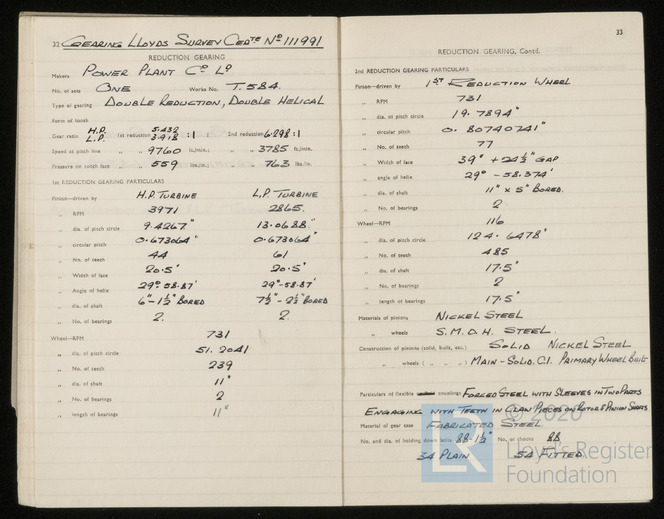 32 GEARING LLOYDS SURVEY CERTE No 111991
REDUCTION GEARING
Makers POWER PLANT Co Ld
No. of sets ONE Works No. T.584.
Type of gearing DOUBLE REDUCTION, DOUBLE HELICAL
Form of tooth
Gear ratio H.P. L.P. 1st reduction 5.432 3.918 :1 2nd reduction 6.298:1
Speed at pitch line " " 9760 ft./min.; " " 3785 ft./min.
Pressure on tooth face " " 559 lbs./in.; " " 763 lbs./in.
1st REDUCTION GEARING PARTICULARS
Pinion—driven by H.P. TURBINE L.P. TURBINE
" RPM 3971 2865.
" dia. of pitch circle 9.4267" 13.0688"
" circular pitch 0.673064" 0.673064"
" No. of teeth 44 61
" Width of face 20.5" 20.5"
" Angle of helix 29°-58.87' 29°-58.87'
" dia. of shaft 6"-1½" BORED 7½"-2½" BORED
" No. of bearings 2. 2.
Wheel—RPM 731
" dia. of pitch circle 51.2041
" No. of teeth 239
" dia. of shaft 11"
" No. of bearings 2
" length of bearings 11"
33
REDUCTION GEARING, Contd.
2nd REDUCTION GEARING PARTICULARS
Pinion—driven by 1ST REDUCTION WHEEL
" RPM 731
" dia. of pitch circle 19.7894"
" circular pitch 0.80740741"
" No. of teeth 77
" Width of face 39" + 24½" GAP
" angle of helix 29° - 58.374'
" dia. of shaft 11" x 5" BORED.
" No. of bearings 2
Wheel—RPM 116
" dia. of pitch circle 124.6478"
" No. of teeth 485
" dia. of shaft 17.5"
" No. of bearings 2
" length of bearings 17.5"
Materials of pinions NICKEL STEEL
" wheels S.M.O.H. STEEL.
Construction of pinions (solid, built, etc.) SOLID NICKEL STEEL
" wheels ( " " ) MAIN-SOLID. C.I. PRIMARY WHEEL BUILT
Particulars of flexible couplings FORGED STEEL WITH SLEEVES IN TWO PARTS
ENGAGING WITH TEETH IN CLAW PIECES ON ROTOR & PINION SHAFTS
Material of gear case FABRICATED STEEL
No. and dia. of holding down bolts 88-1½" No. of chocks 88
34 PLAIN 54 FITTED.
© 2020
LR
Lloyd's Register
Foundation